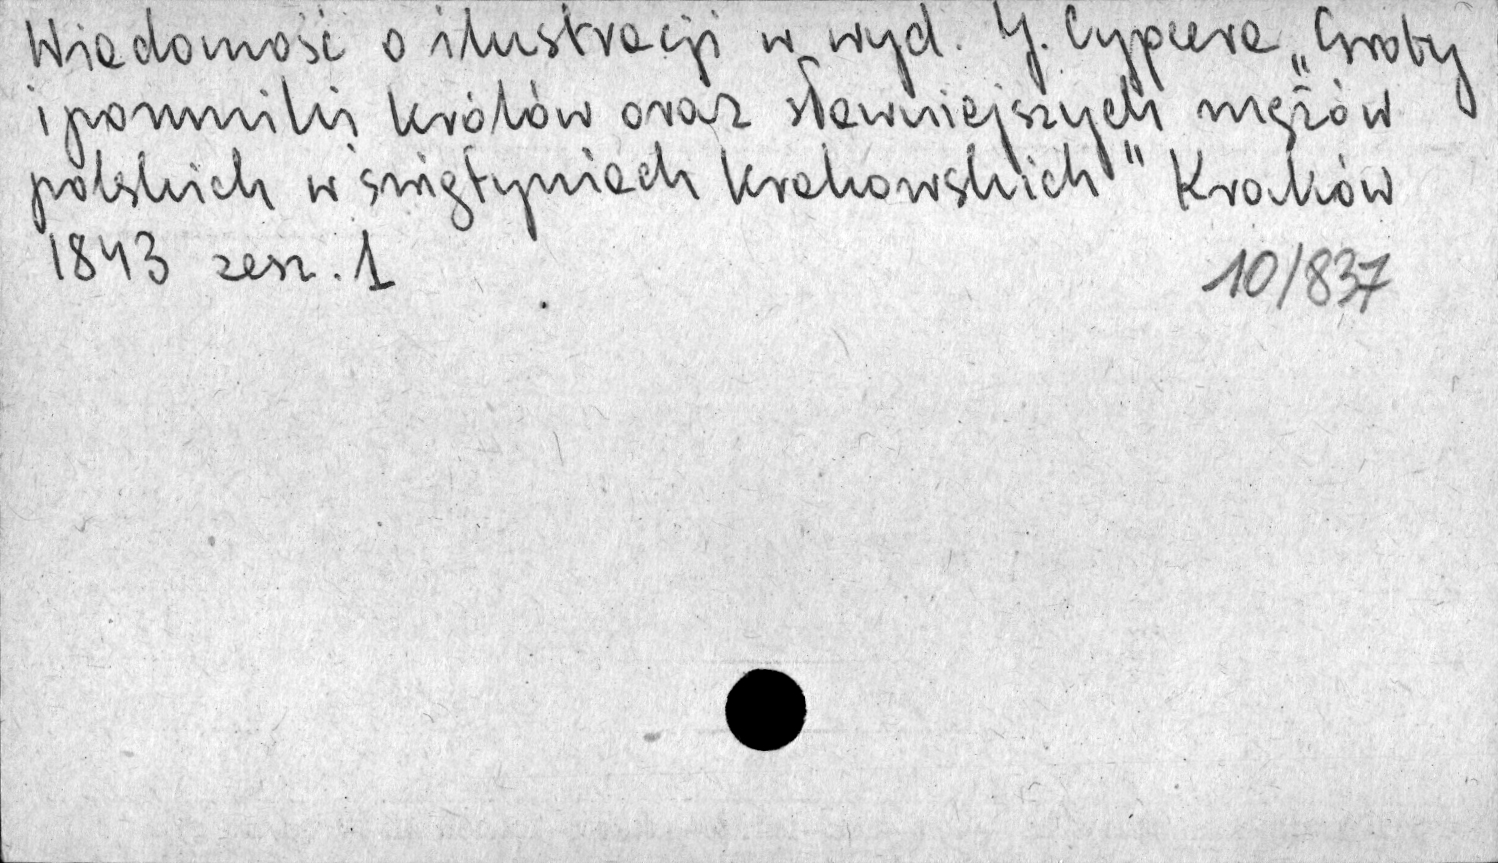 Wiadomość o ilustracji w wyd. J. Cypcera „Groby
i pomniki królów oraz sławniejszych mężów
polskich w świątyniach krakowskich" Kraków
1843 zesz. 1
10/837